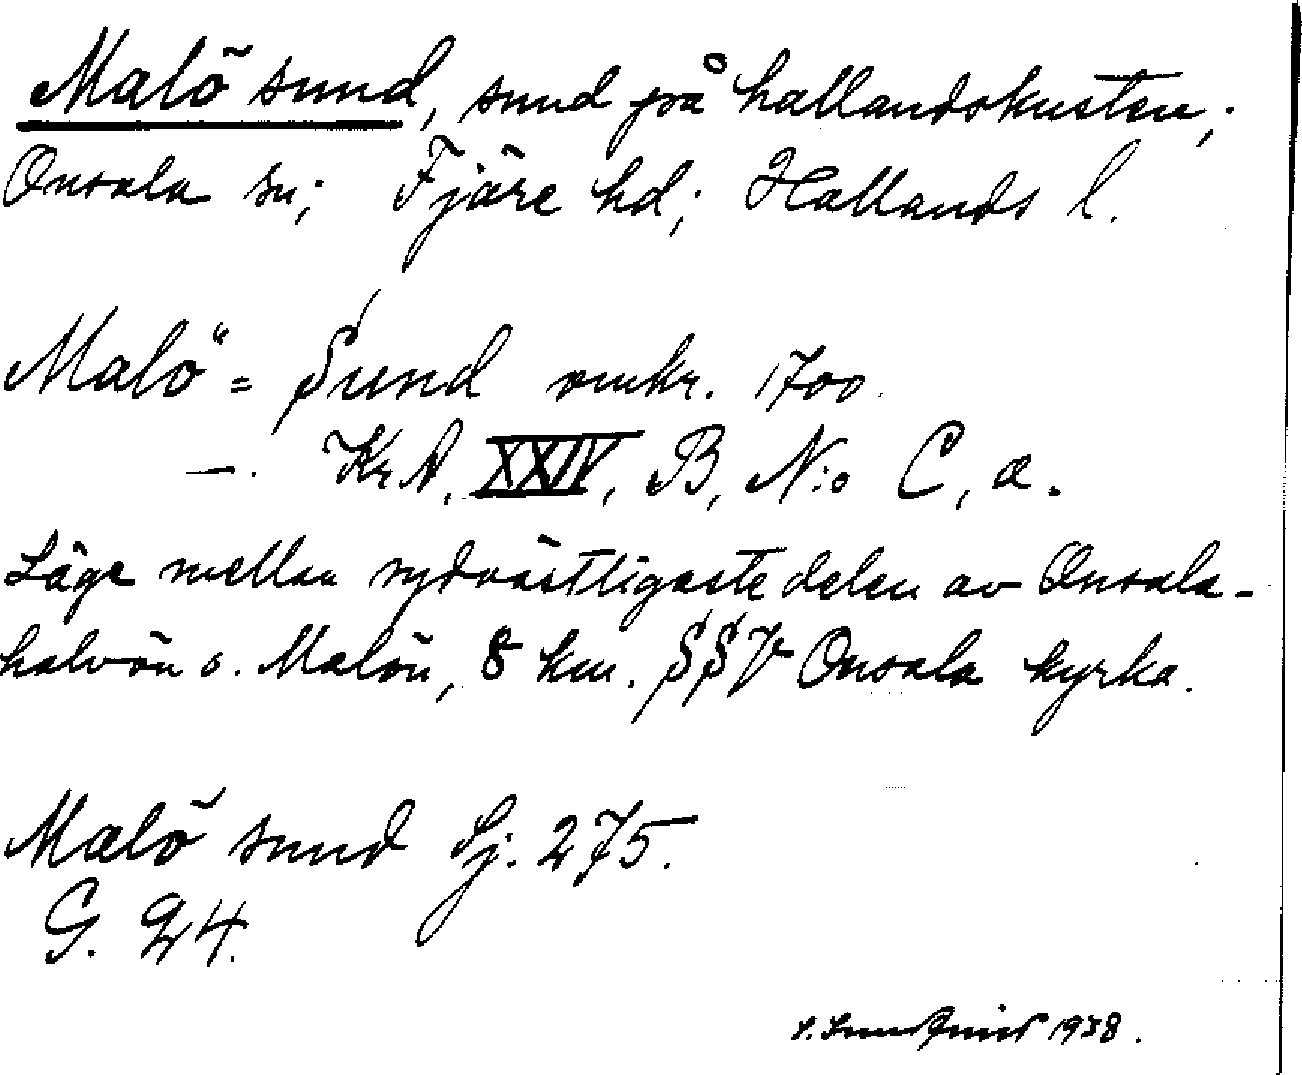 Malö sund, sund på hallandskusten;
Onsala sn; Fjäre hd; Hallands l.
Malö= Sund omkr. 1700.
—. Kr.A. XXIV, B, N:o C, a.
Läge mellan sydvästligaste delen av Onsala-
halvön o. Malön, 8 km. SSV Onsala kyrka.
Malö sund Sj. 275.
G. 24.
1938.